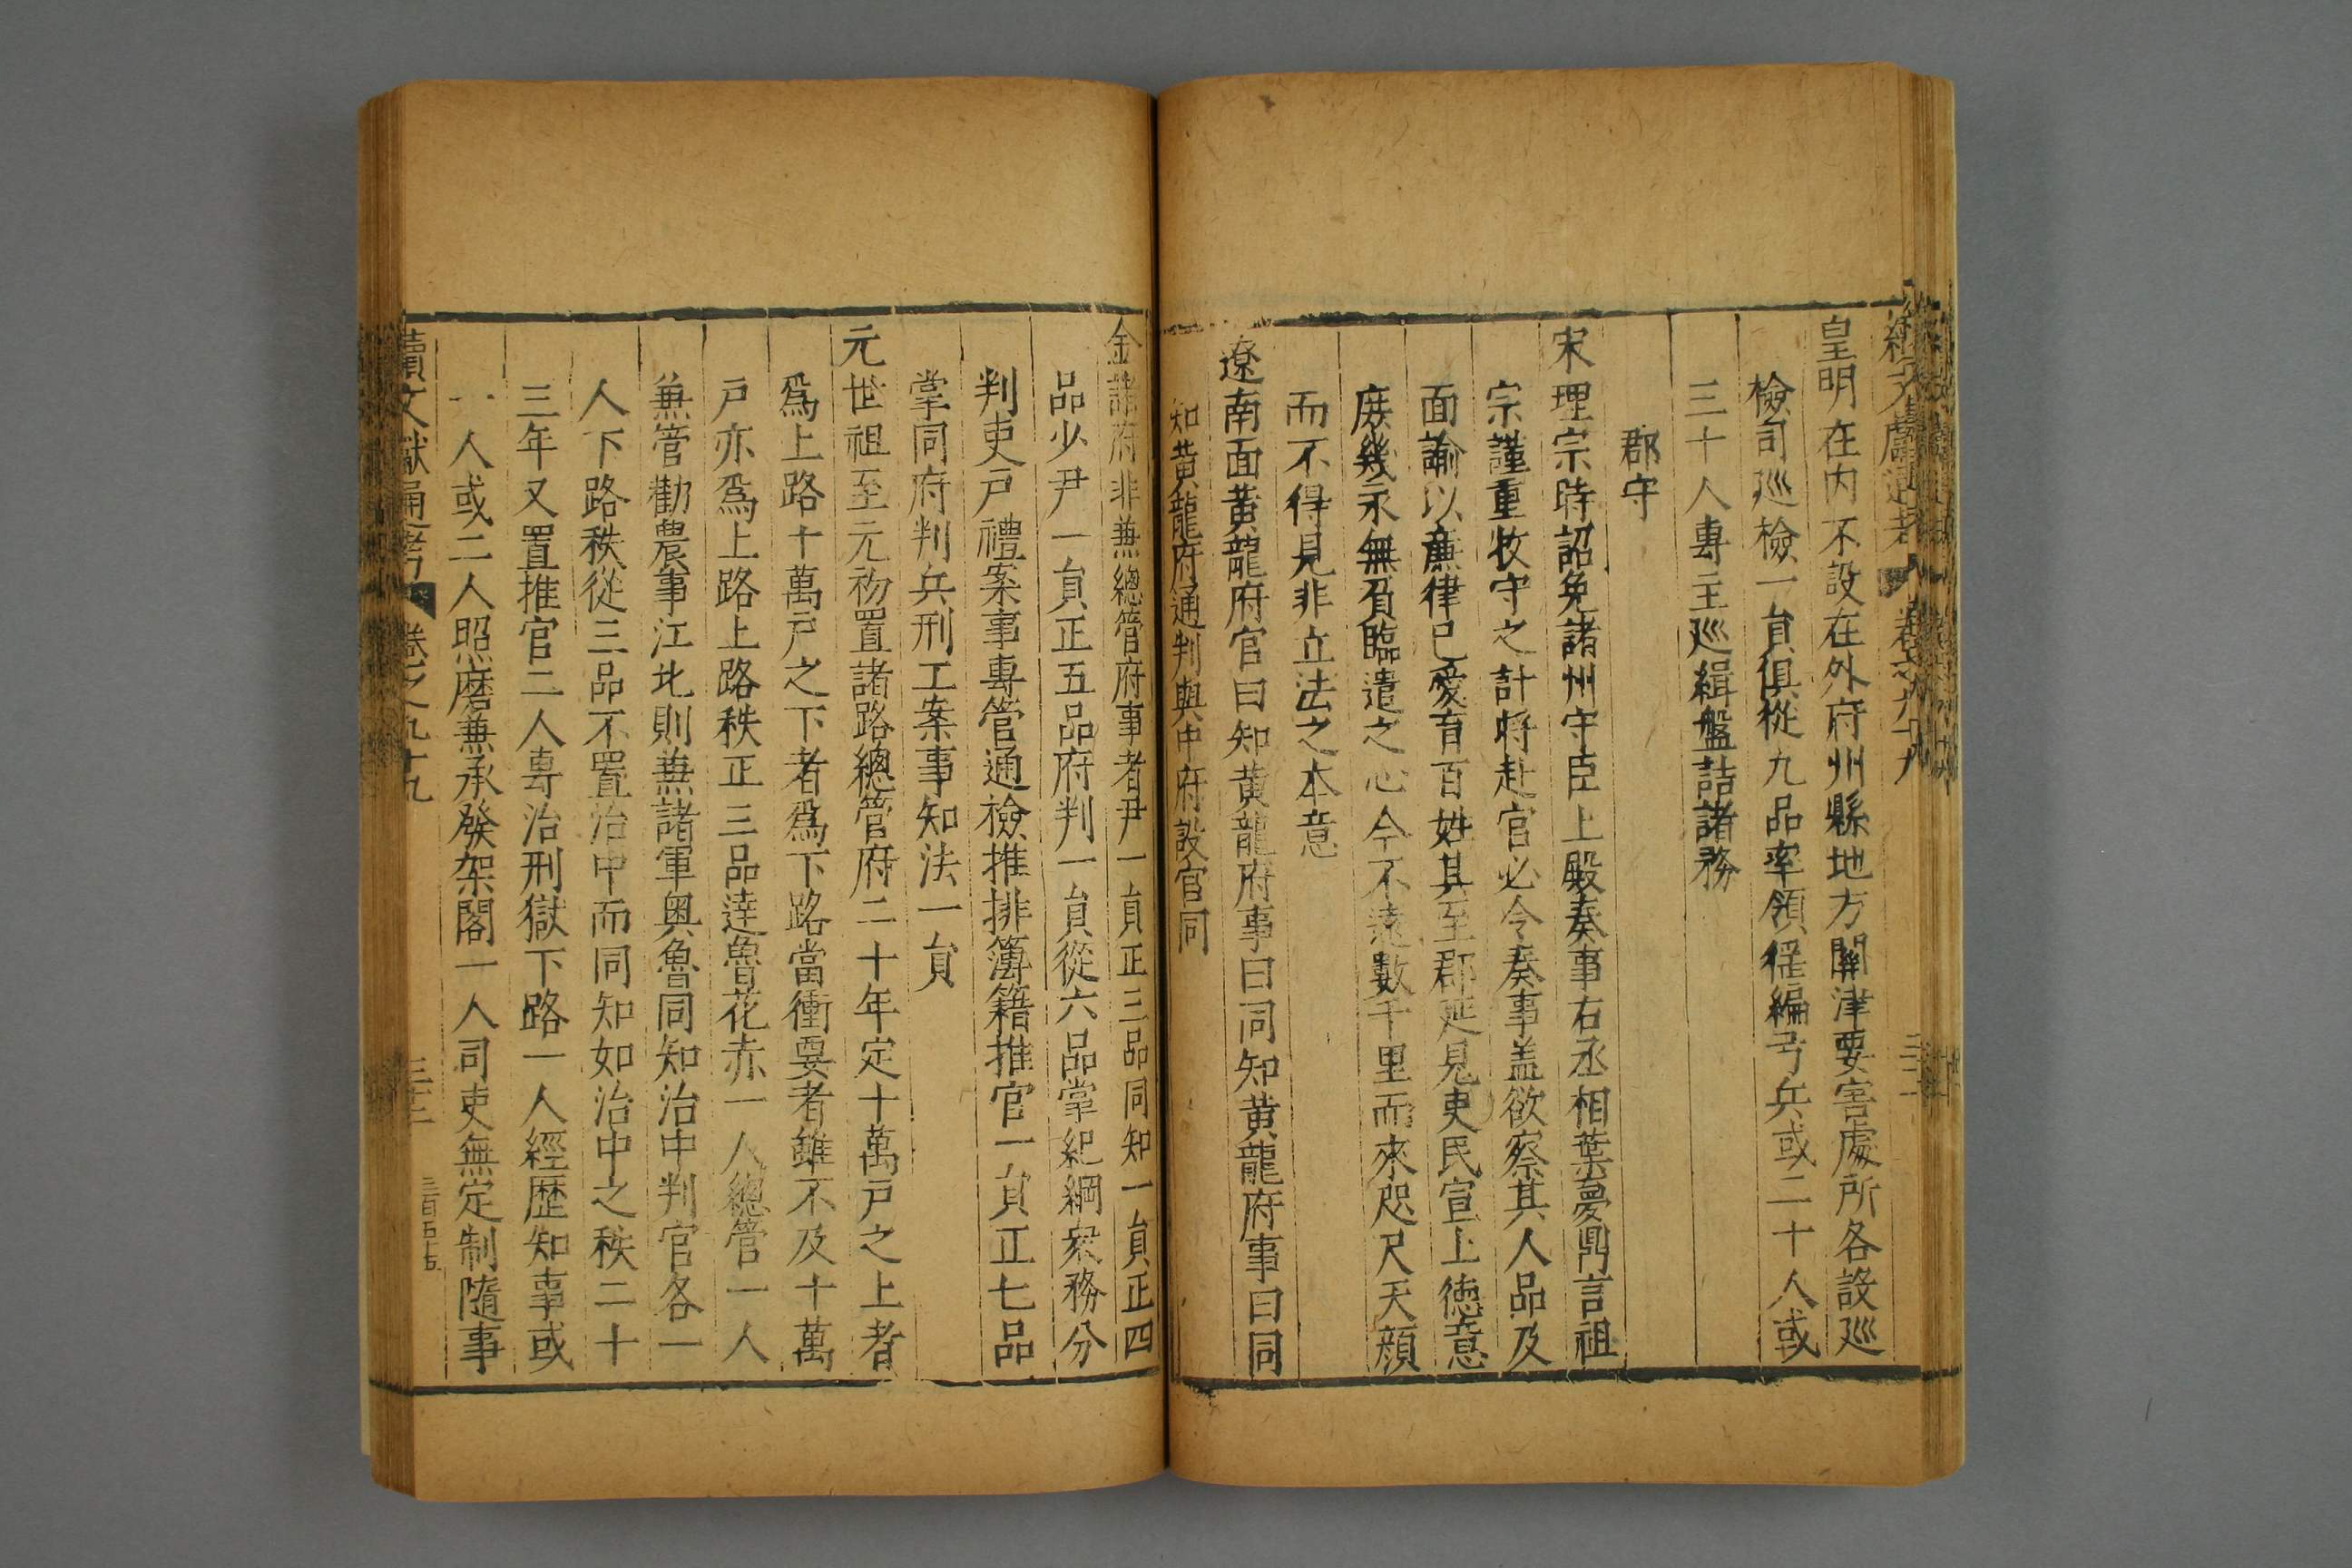 續文獻通考 卷之九十九
皇明在内不設在外府州縣地方關津要害處所各設巡
檢司巡檢一員俱從九品率領徭編弓兵或二十人或
三十人專主巡緝盤詰諸務
郡守
宋理宗時詔免諸州守臣上殿奏事右丞相葉夢鼎言祖
宗謹重牧守之計將赴官必令奏事盖欲察其人品及
面諭以亷律已愛育百姓其至郡延見吏民宣上德意
庶幾永無負臨遣之心今不遠數千里而來咫尺天顔
而不得見非立法之本意
遼南面黄龍府官曰知黄龍府事曰同知黄龍府事曰同
知黄龍府通判興中府設官同
金諸府非兼總管府事者尹一員正三品同知一員正四
品少尹一員正五品府判一員從六品掌紀綱衆務分
判吏戸禮案事專管通檢推排簿籍推官一員正七品
掌同府判兵刑工案事知法一員
元世祖至元初置諸路總管府二十年定十萬戸之上者
爲上路十萬戸之下者爲下路當衝要者雖不及十萬
戸亦爲上路上路秩正三品達魯花赤一人總管一人
兼管勸農事江北則兼諸軍奥魯同知治中判官各一
人下路秩從三品不置治中而同知如治中之秩二十
三年又置推官二人專治刑獄下路一人經歷知事或
一人或二人照磨兼承發架閣一人司吏無定制隨事
續文獻通考 卷之九十九